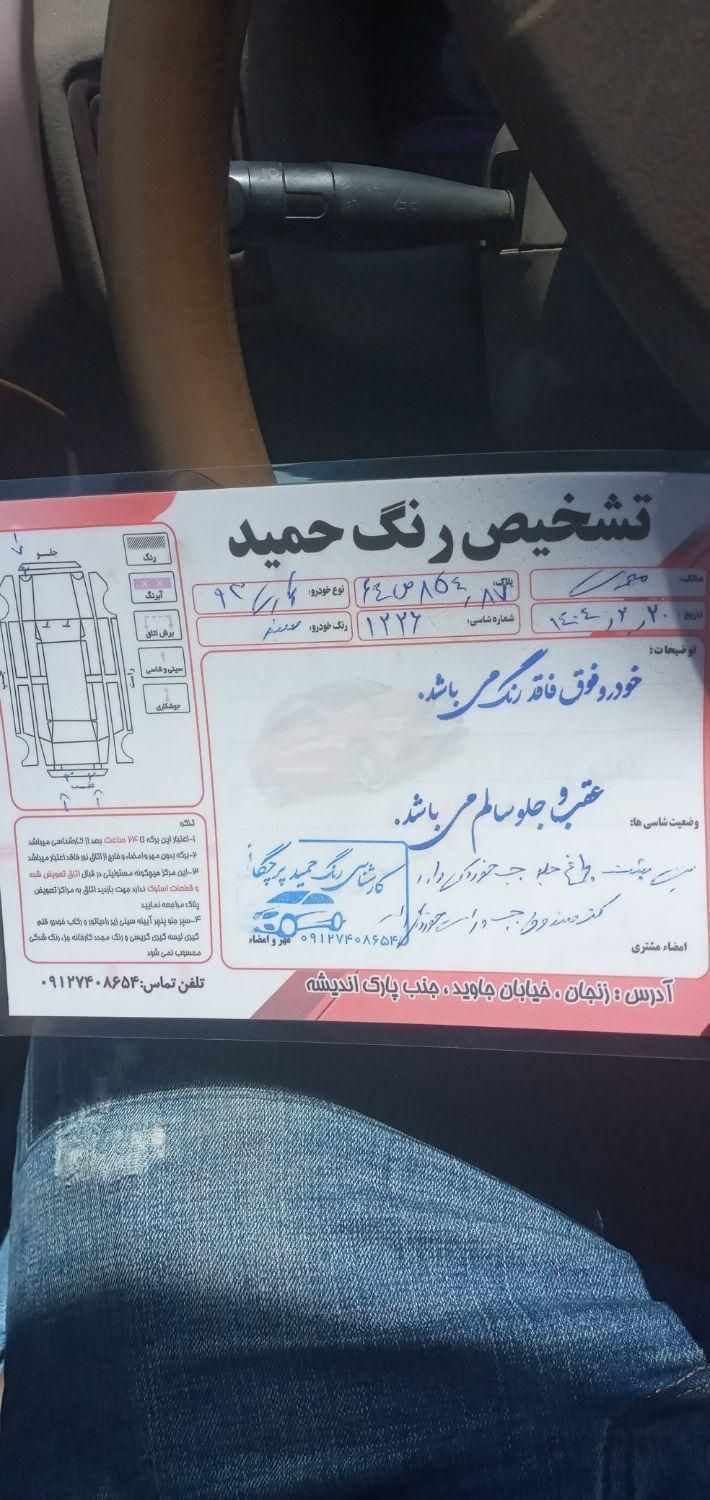 تشخیص رنگ حمید
مالک:
پلاک: ۸۷
نوع خودرو: پارس ۹۳
تاریخ: ۱۴۰۴٫۲٫۲۰
شماره شاسی: ۱۲۲۶
رنگ خودرو: سفید
توضیحات:
خودرو فوق فاقد رنگ می باشد.
وضعیت شاسی ها: عقب و جلو سالم می باشد.
سینی پشت چراغ جلو چپ خوردگی دارد
کف صندوق چپ و راست خوردگی دارد
کارشناسی رنگ حمید پرچگانی
۰۹۱۲۷۴۰۸۶۵۴
مهر و امضاء
امضاء مشتری
جلو
راست
عقب
رنگ
آبرنگ
برش اتاق
سینی و شاسی
جوشکاری
تذکر:
۱-اعتبار این برگه تا ۲۴ ساعت بعد از کارشناسی میباشد
۲-برگه بدون مهر و امضاء و خارج از اتاق نور فاقد اعتبار میباشد
۳-این مرکز هیچگونه مسئولیتی در قبال اتاق تعویض شده
و قطعات استوک ندارد جهت بازدید اتاق به مراکز تعویض
پلاک مراجعه نمایید
۴-سپر جلو پنجر آیینه سینی زیر رادیاتور و رکاب خودرو قلم
گیری لیسه گیری گریسی و رنگ مجدد کارخانه جزء رنگ شدگی
محسوب نمی شود
تلفن تماس: ۰۹۱۲۷۴۰۸۶۵۴
آدرس : زنجان ، خیابان جاوید ، جنب پارک اندیشه